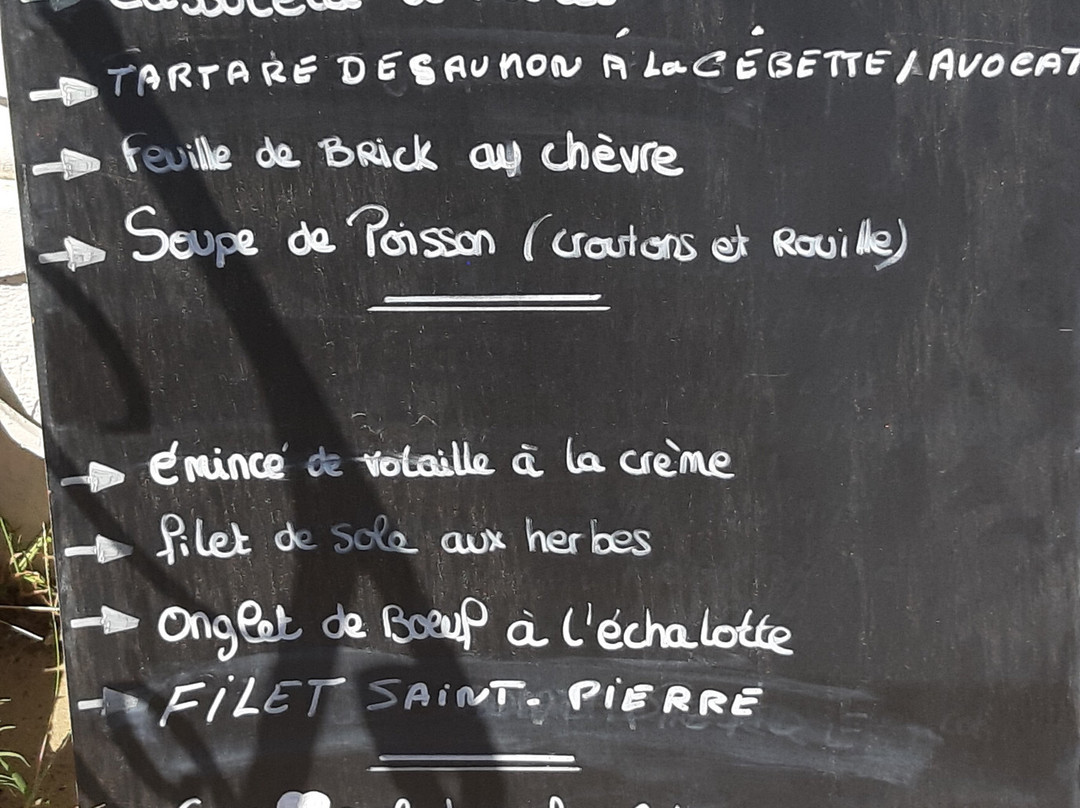 TARTARE DE SAUMON À LA CÉBETTE / AVOCAT
feuille de BRick au chèvre
Soupe de Poisson (croutons et Rouille)
émincé de volaille à la crème
filet de sole aux herbes
Onglet de Boeuf à l'échalotte
FiLET SAiNT-PiERRE